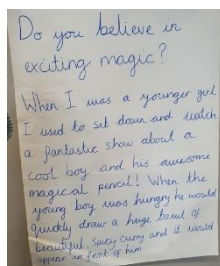 Do you believe in
exciting magic?
When I was a younger girl
I used to sit down and watch
a fantastic show about a
cool boy and his awesome
magical pencil! When the
young boy was hungry he would
quickly draw a huge bowl of
beautiful, spicy curry and it would
appear in front of him